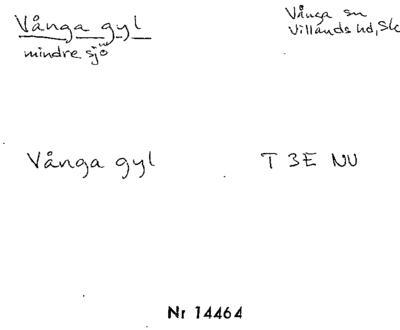 Vånga gyl
mindre sjö
Vånga sn
Villands hd, Sk
Vånga gyl
T 3E NV
Nr 14464